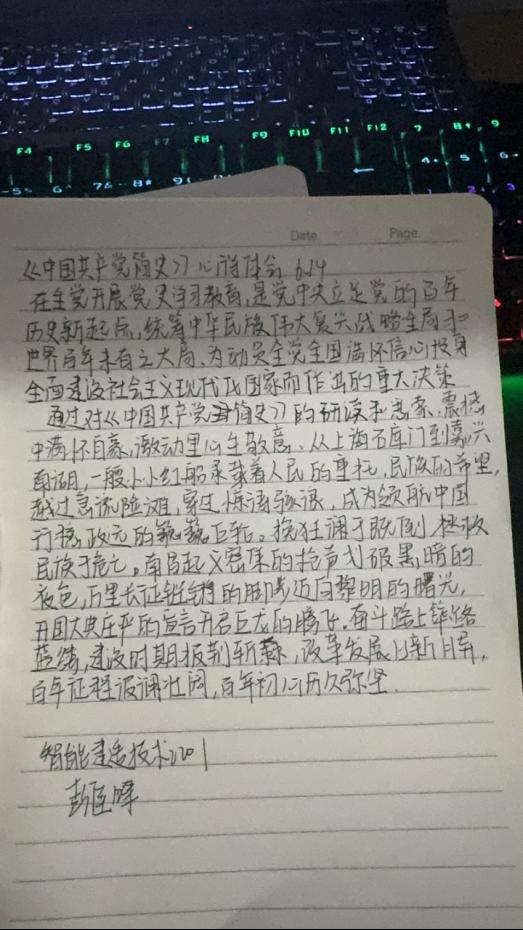 F4 F5 F6 F7 F8 F9 F10 F11 F12 7 8* 9
Date Page
《中国共产党简史》心得体会 6.14
在全党开展党史学习教育,是党中央立足党的百年
历史新起点,统筹中华民族伟大复兴战略全局和
世界百年未有之大局、为动员全党全国满怀信心投身
全面建设社会主义现代化国家而作出的重大决策
通过对《中国共产党简史》的研读和思索、震撼
中满怀自豪,激动里心生敬意、从上海石库门到嘉兴
南湖,一艘小小红船承载着人民的重托,民族的希望,
越过急流险滩,穿过惊涛骇浪,成为领航中国
行稳致远的巍巍巨轮。挽狂澜于既倒,拯救
民族于危亡。南昌起义密集的枪声划破黑暗的
夜色,万里长征铿锵的脚步迈向黎明的曙光,
开国大典庄严的宣言开启巨龙的腾飞.奋斗路上筚路
蓝缕,建设时期披荆斩棘,改革发展日新月异,
百年征程波澜壮阔,百年初心历久弥坚.
智能建造技术2201